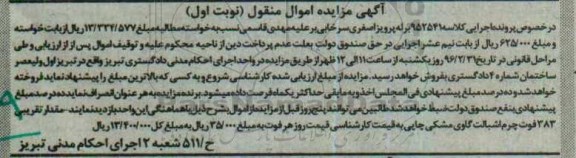 آگهی مزایده اموال منقول (نوبت اول)
درخصوص پرونده اجرایی کلاسه ۹۵۲۵۴۱ برله پرویز اصغری سرخابی بر علیه مهدی قاسمی نسب به خواسته مطالبه مبلغ ۱۳/۳۳۴/۵۷۷ ریال از بابت خواسته
و مبلغ ۶۲۵/۰۰۰ ریال از بابت نیم عشر اجرایی در حق صندوق دولت بعلت عدم پرداخت دین از ناحیه محکوم علیه و توقیف اموال پس از ارزیابی و طی
مراحل قانونی در تاریخ ۹۶/۲/۳۱ روز یکشنبه از ساعت ۱۱ الی ۱۲ ظهر از طریق مزایده در واحد اجرای احکام مدنی دادگستری تبریز واقع در تبریز اول ولیعصر
ساختمان شماره ۲ دادگستری بفروش خواهد رسید. مزایده از مبلغ ارزیابی شده کارشناسی شروع و به کسی که بالاترین مبلغ را پیشنهاد نماید فروخته
خواهد شد و ده درصد مبلغ پیشنهادی فی المجلس اخذ و به مابقی حداکثر یکماه فرصت داده میشود. برنده مزایده به هر عنوان انصراف نماید ده درصد مبلغ
پیشنهادی بنفع صندوق دولت ضبط خواهد شد طالبین می توانند پنج روز قبل از مزایده از اموال بشرح ذیل با هماهنگی این واحد بازدید نمایند- مقدار تقریبی
۳۸۳ فوت چرم اشبالت گاوی مشکی چاپی به قیمت کارشناسی قیمت روز هر فوت به مبلغ ۳۵/۰۰۰ ریال به مبلغ کل ۱۳/۴۰۰/۰۰۰ ریال
ح/۵۱۱ شعبه ۲ اجرای احکام مدنی تبریز